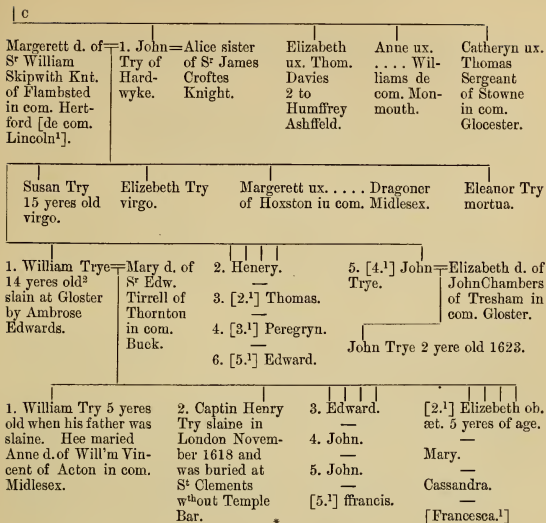 c
Margerett d. of
Sr William
Skipwith Knt.
of Flambsted
in com. Hert-
ford [de com.
Lincoln¹].
1. John
Try of
Hard-
wyke.
Alice sister
of Sr James
Croftes
Knight.
Elizabeth
ux. Thom.
Davies
2 to
Humffrey
Ashffeld.
Anne ux.
. . . . Wil-
liams de
com. Mon-
mouth.
Catheryn ux.
Thomas
Sergeant
of Stowne
in com.
Glocester.
Susan Try
15 yeres old
virgo.
Elizebeth Try
virgo.
Margerett ux. . . . . . Dragoner
of Hoxston iu com. Midlesex.
Eleanor Try
mortua.
1. William Trye
14 yeres old²
slain at Gloster
by Ambrose
Edwards.
Mary d. of
Sr Edw.
Tirrell of
Thornton
in com.
Buck.
2. Henery.
—
3. [2.¹] Thomas.
—
4. [3.¹] Peregryn.
—
6. [5.¹] Edward.
5. [4.¹] John
Trye.
Elizabeth d. of
John Chambers
of Tresham in
com. Gloster.
John Trye 2 yere old 1623.
1. William Try 5 yeres
old when his father was
slaine. Hee maried
Anne d. of Will'm Vin-
cent of Acton in com.
Midlesex.
2. Captin Henry
Try slaine in
London Novem-
ber 1618 and
was buried at
St Clements
wthout Temple
Bar.
3. Edward.
—
4. John.
—
5. John.
—
[5.¹] ffrancis.
[2.¹] Elizebeth ob.
æt. 5 yeres of age.
—
Mary.
—
Cassandra.
—
[Francesca.¹]